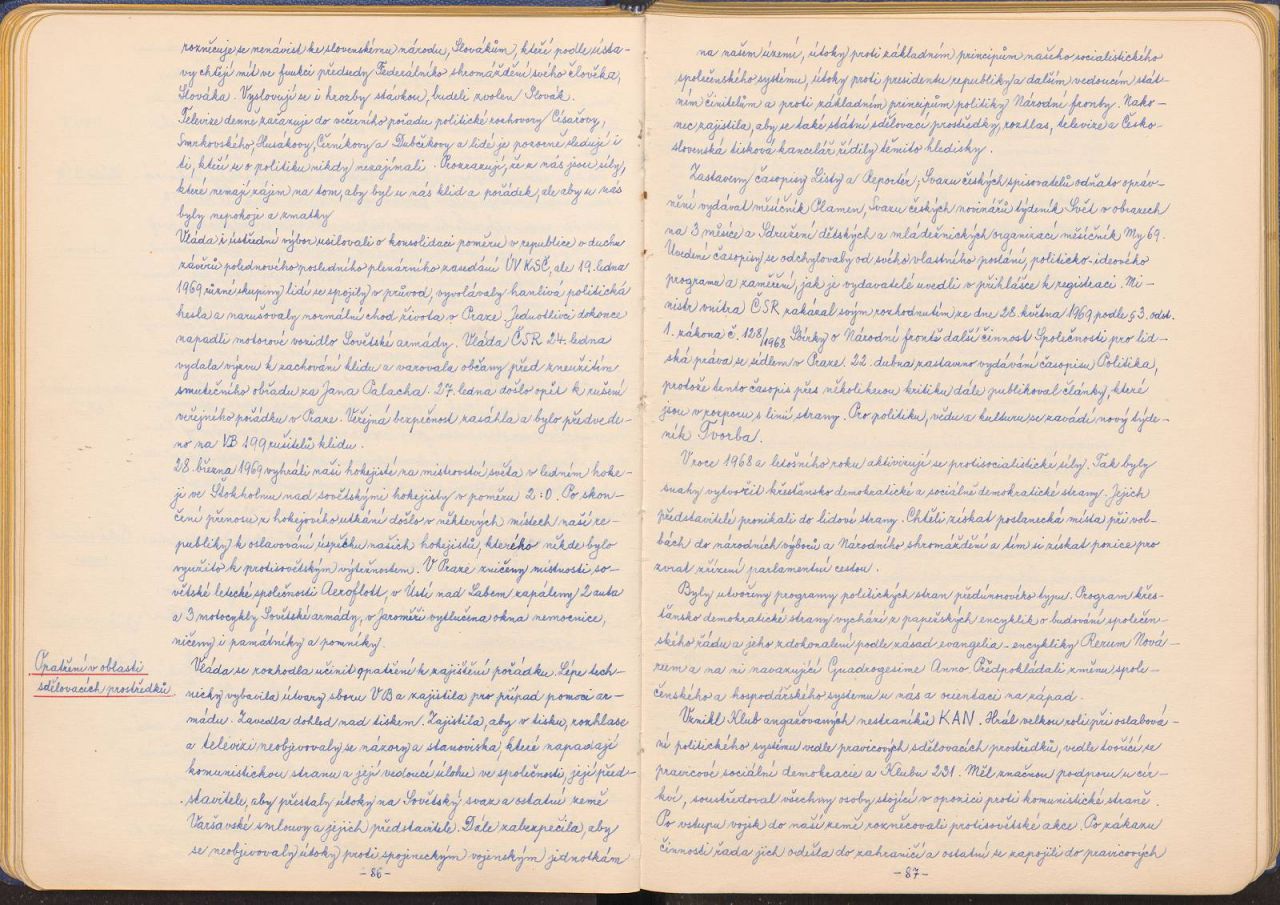 rozněcuje se nenávist ke slovenskému národu, Slovákům, kteří podle ústa-
vy chtějí mít ve funkci předsedy Federálního shromáždění svého člověka,
Slováka. Vyslovují se i hrozby stávkou, bude-li zvolen Slovák.
Televize denně zařazuje do večerního pořadu politické rozhovory Císařovy,
Smrkovského, Husákovy, Černíkovy a Dubčekovy a lidé je pozorně sledují i
ti, kteří se o politiku nikdy nezajímali. Prozrazují, že z nás jsou síly,
které nemají zájem na tom, aby byl u nás klid a pořádek, ale aby u nás
byly nepokoje a zmatky
Vláda i ústřední výbor usilovali o konsolidaci poměrů v republice v duchu
závěrů polednového posledního plenárního zasedání ÚV KSČ, ale 19. ledna
1969 různé skupiny lidí se spojily v průvod, vyvolávaly hanlivá politická
hesla a narušovaly normální chod života v Praze. Jednotlivci dokonce
napadli motorové vozidlo Sovětské armády. Vláda ČSR 24. ledna
vydala výzvu k zachování klidu a varovala občany před zneužitím
smutečního obřadu za Jana Palacha. 27. ledna došlo opět k rušení
veřejného pořádku v Praze. Veřejná bezpečnost zasáhla a bylo předvede-
no na VB 199 rušitelů klidu.
28. března 1969 vyhráli naši hokejisté na mistrovství světa v ledním hoke-
ji ve Štokholmu nad sovětskými hokejisty v poměru 2:0. Po skon-
čení přenosu z hokejového utkání došlo v některých místech naší re-
publiky k oslavování úspěchu našich hokejistů, kterého někde bylo
využito k protisovětským výtržnostem. V Praze zničeny místnosti so-
větské letecké společnosti Aeroflott, v Ústí nad Labem zapáleny 2 auta
a 3 motocykly Sovětské armády, v Jaroměři vytlučena okna nemocnice,
ničeny i památníky a pomníky.
Opatření v oblasti
sdělovacích prostředků
Vláda se rozhodla učinit opatření k zajištění pořádku. Lépe tech-
nicky vybavila útvary sboru VB a zajistila pro případ pomoci ar-
mádu. Zavedla dohled nad tiskem. Zajistila, aby v tisku, rozhlase
a televizi neobjevovaly se názory a stanoviska, které napadají
komunistickou stranu a její vedoucí úlohu ve společnosti, její před-
stavitele, aby přestaly útoky na Sovětský svaz a ostatní země
Varšavské smlouvy a jejich představitele. Dále zabezpečila, aby
se neobjevovaly útoky proti spojeneckým vojenským jednotkám
- 86 -
na našem území, útoky proti základním principům našeho socialistického
společenského systému, útoky proti presidentu republiky a dalším vedoucím stát-
ním činitelům a proti základním principům politiky Národní fronty. Nako-
nec zajistila, aby se také státní sdělovací prostředky, rozhlas, televize a Česko-
slovenská tisková kancelář řídily těmito hledisky.
Zastaveny časopisy Listy a Reportér; Svazu českých spisovatelů odňato opráv-
nění vydávat měsíčník Plamen, Svazu českých novinářů týdeník Svět v obrazech
na 3 měsíce a Sdružení dětských a mládežnických organizací měsíčník My 69.
Uvedené časopisy se odchylovaly od svého vlastního poslání, politicko-ideového
programu a zaměření, jak je vydavatelé uvedli v přihlášce k registraci. Mi-
nistr vnitra ČSR zakázal svým rozhodnutím ze dne 28. května 1969 podle § 3. odst.
1. zákona č. 128/1968 Sbírky o Národní frontě další činnost Společnosti pro lid-
ská práva se sídlem v Praze. 22. dubna zastaveno vydávání časopisu Politika,
protože tento časopis přes několikerou kritiku dále publikoval články, které
jsou v rozporu s linií strany. Pro politiku, vědu a kulturu se zavádí nový týde-
ník Tvorba.
V roce 1968 a letošního roku aktivizují se protisocialistické síly. Tak byly
snahy vytvořit křesťansko demokratické a sociálně demokratické strany. Jejich
představitelé pronikali do lidové strany. Chtěli získat poslanecká místa při vol-
bách do národních výborů a Národního shromáždění a tím si získat pozice pro
zvrat zřízení parlamentní cestou.
Byly utvořeny programy politických stran předúnorového typu. Program křes-
ťansko demokratické strany vychází z papežských encyklik o budování společen-
ského řádu a jeho zdokonalení podle zásad evangelia - encykliky Rerum Nová-
rum a na ni navazující Guadrogesime Anno Předpokládali změnu spole-
čenského a hospodářského systemu u nás a orientaci na západ
Vznikl Klub angažovaných nestraníků KAN. Hrál velkou roli při oslabová-
ní politického systému vedle pravicových sdělovacích prostředků, vedle tvořící se
pravicové sociální demokracie a Klubu 231. Měl značnou podporu u cír-
kví, soustřeďoval všechny osoby stojící v opozici proti komunistické straně.
Po vstupu vojsk do naší země rozněcovali protisovětské akce. Po zákazu
činnosti řada jich odešla do zahraničí a ostatní se zapojili do pravicových
- 87 -